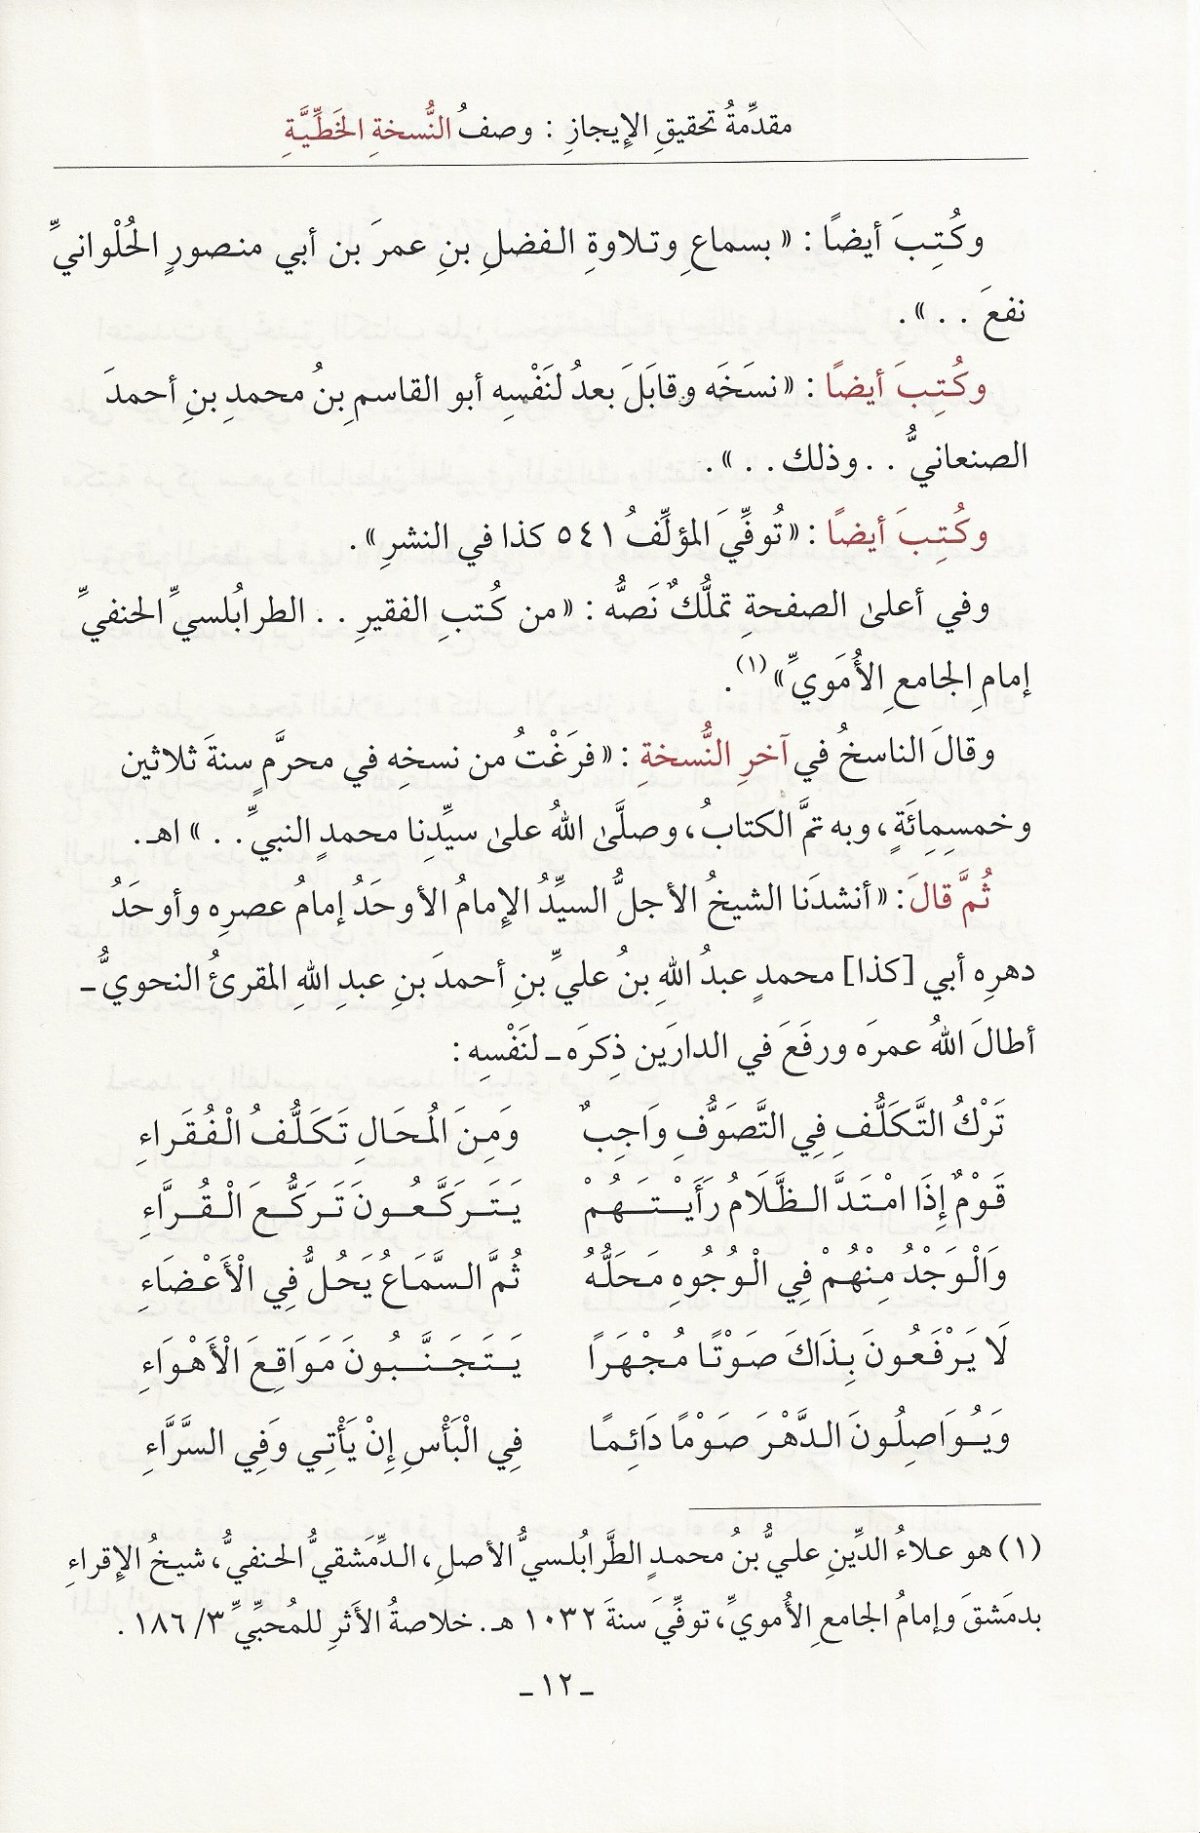 مقدِّمةُ تحقيقِ الإيجازِ : وصفُ النُّسخةِ الخَطِّيَّةِ
وكُتِبَ أيضاً : « بسماعِ وتلاوةِ الفضلِ بنِ عمرَ بن أبي منصورٍ الحُلْوانيِّ
نفعَ . . » .
وكُتِبَ أيضًا : « نسَخَه وقابَلَ بعدُ لنَفْسِه أبو القاسمِ بنُ محمدِ بنِ أحمدَ
الصنعانيُّ . . وذلك . . » .
وكُتِبَ أيضًا : « تُوفِّيَ المؤلِّفُ ٥٤١ كذا في النشرِ » .
وفي أعلىٰ الصفحةِ تملُّكٌ نَصُّه : « من كُتبِ الفقيرِ . . الطرابُلسيِّ الحنفيِّ
إمامِ الجامعِ الأُمَويِّ »(١) .
وقالَ الناسخُ في آخرِ النُّسخةِ : « فرَغْتُ من نسخِه في محرَّمٍ سنةَ ثلاثين
وخمسِمِائَةٍ ، وبه تمَّ الكتابُ ، وصلَّىٰ اللهُ علىٰ سيِّدِنا محمدٍ النبيِّ . . » اهـ .
ثُمَّ قالَ : « أنشدَنا الشيخُ الأجلُّ السيِّدُ الإمامُ الأوحَدُ إمامُ عصرِه وأوحَدُ
دهرِه أبي [كذا] محمدٍ عبدُ اللهِ بنُ عليِّ بنِ أحمدَ بنِ عبدِ اللهِ المقرئُ النحويُّ ـ
أطالَ اللهُ عمرَه ورفَعَ في الدارَين ذِكرَه ـ لنَفْسِه :
تَرْكُ التَّكَلُّفِ فِي التَّصَوُّفِ وَاجِبٌ وَمِنَ الْمُحَالِ تَكَلُّفُ الْفُقَراءِ
قَوْمٌ إِذَا امْتَدَّ الظَّلَامُ رَأَيْتَهُمْ يَتَرَكَّعُونَ تَرَكُّعَ الْقُرَّاءِ
وَالْوَجْدُ مِنْهُمْ فِي الْوُجُوهِ مَحَلُّهُ ثُمَّ السَّمَاعُ يَحُلُّ فِي الْأَعْضَاءِ
لَا يَرْفَعُونَ بِذَاكَ صَوْتًا مُجْهَرًا يَتَجَنَّبُونَ مَوَاقِعَ الْأَهْوَاءِ
وَيُوَاصِلُونَ الدَّهْرَ صَوْمًا دَائِمًا فِي الْبَأْسِ إِنْ يَأْتِي وَفِي السَّرَّاءِ
(١) هو علاءُ الدِّينِ عليُّ بنُ محمدٍ الطَّرابُلسيُّ الأصلِ ، الدِّمَشقيُّ الحنفيُّ ، شيخُ الإقراءِ
بدمَشقَ وإمامُ الجامعِ الأُمويِّ ، توفِّيَ سنةَ ١٠٣٢ هـ . خلاصةُ الأَثرِ للمُحبِّيِّ ٣/ ١٨٦ .
ـ ١٢ ـ